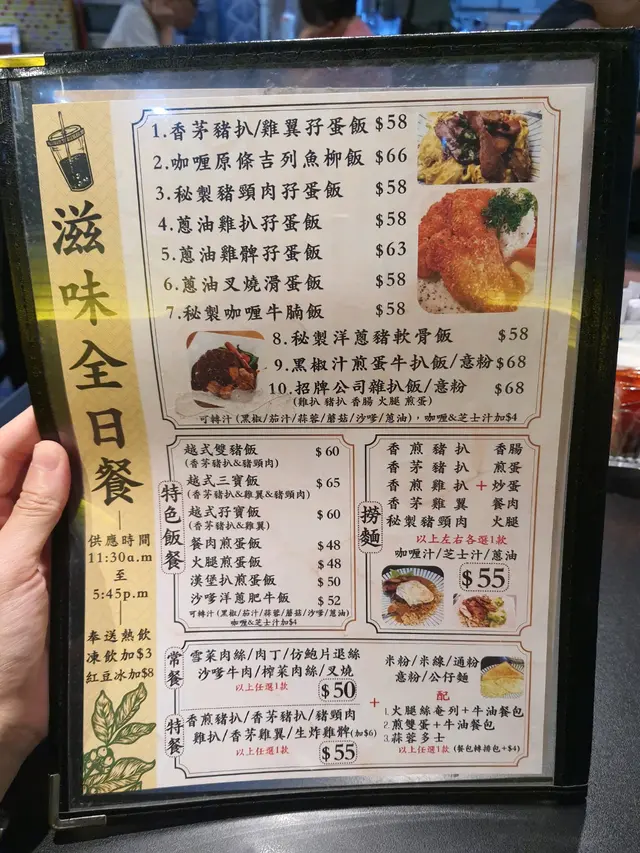 滋味全日餐
供應時間
11:30a.m
至
5:45p.m
奉送熱飲
凍飲加$3
紅豆冰加$8
1.香茅豬扒/雞翼孖蛋飯 $58
2.咖喱原條吉列魚柳飯 $66
3.秘製豬頸肉孖蛋飯 $58
4.蔥油雞扒孖蛋飯 $58
5.蔥油雞髀孖蛋飯 $63
6.蔥油叉燒滑蛋飯 $58
7.秘製咖喱牛腩飯 $58
8.秘製洋蔥豬軟骨飯 $58
9.黑椒汁煎蛋牛扒飯/意粉 $68
10.招牌公司雜扒飯/意粉 $68
(雞扒 豬扒 香腸 火腿 煎蛋)
可轉汁(黑椒/茄汁/蒜蓉/蘑菇/沙嗲/蔥油)，咖喱&芝士汁加$4
特色飯餐
越式雙豬飯 $60
(香茅豬扒&豬頸肉)
越式三寶飯 $65
(香茅豬扒&雞翼&豬頸肉)
越式孖寶飯 $60
(香茅豬扒&雞翼)
餐肉煎蛋飯 $48
火腿煎蛋飯 $48
漢堡扒煎蛋飯 $50
沙嗲洋蔥肥牛飯 $52
可轉汁(黑椒/茄汁/蒜蓉/蘑菇/沙嗲/蔥油)
咖喱&芝士汁加$4
撈麵
香煎豬扒 香腸
香茅豬扒 煎蛋
香煎雞扒 + 炒蛋
香茅雞翼 餐肉
秘製豬頸肉 火腿
以上左右各選1款
咖喱汁/芝士汁/蔥油
$55
常餐
雪菜肉絲/肉丁/仿鮑片退絲
沙嗲牛肉/榨菜肉絲/叉燒
以上任選1款 $50
特餐
香煎豬扒/香茅豬扒/豬頸肉
雞扒/香茅雞翼/生炸雞髀(加$6)
以上任選1款 $55
+
米粉/米線/通粉
意粉/公仔麵
配
1.火腿絲奄列+牛油餐包
2.煎雙蛋+牛油餐包
3.蒜蓉多士
以上任選1款 (餐包轉撈包+$4)